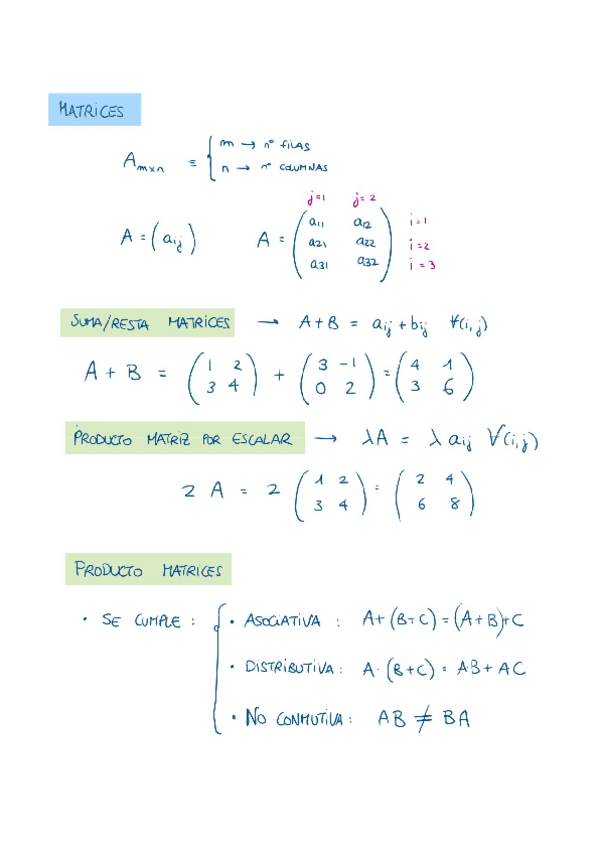 MATRICES
m → nº FILAS
A m×n ≡ {
n → nº COLUMNAS
j=1 j=2
A = (aij) A = ( a11 a12 ) i=1
( a21 a22 ) i=2
( a31 a32 ) i=3
SUMA/RESTA MATRICES → A+B = aij + bij ∀(i,j)
A + B = ( 1 2 ) + ( 3 -1 ) = ( 4 1 )
( 3 4 ) ( 0 2 ) ( 3 6 )
PRODUCTO MATRIZ POR ESCALAR → λA = λ aij ∀(i,j)
2 A = 2 ( 1 2 ) = ( 2 4 )
( 3 4 ) ( 6 8 )
PRODUCTO MATRICES
• SE CUMPLE : { • ASOCIATIVA : A+(B+C)=(A+B)+C
• DISTRIBUTIVA : A·(B+C) = AB + AC
• NO CONMUTIVA : AB ≠ BA